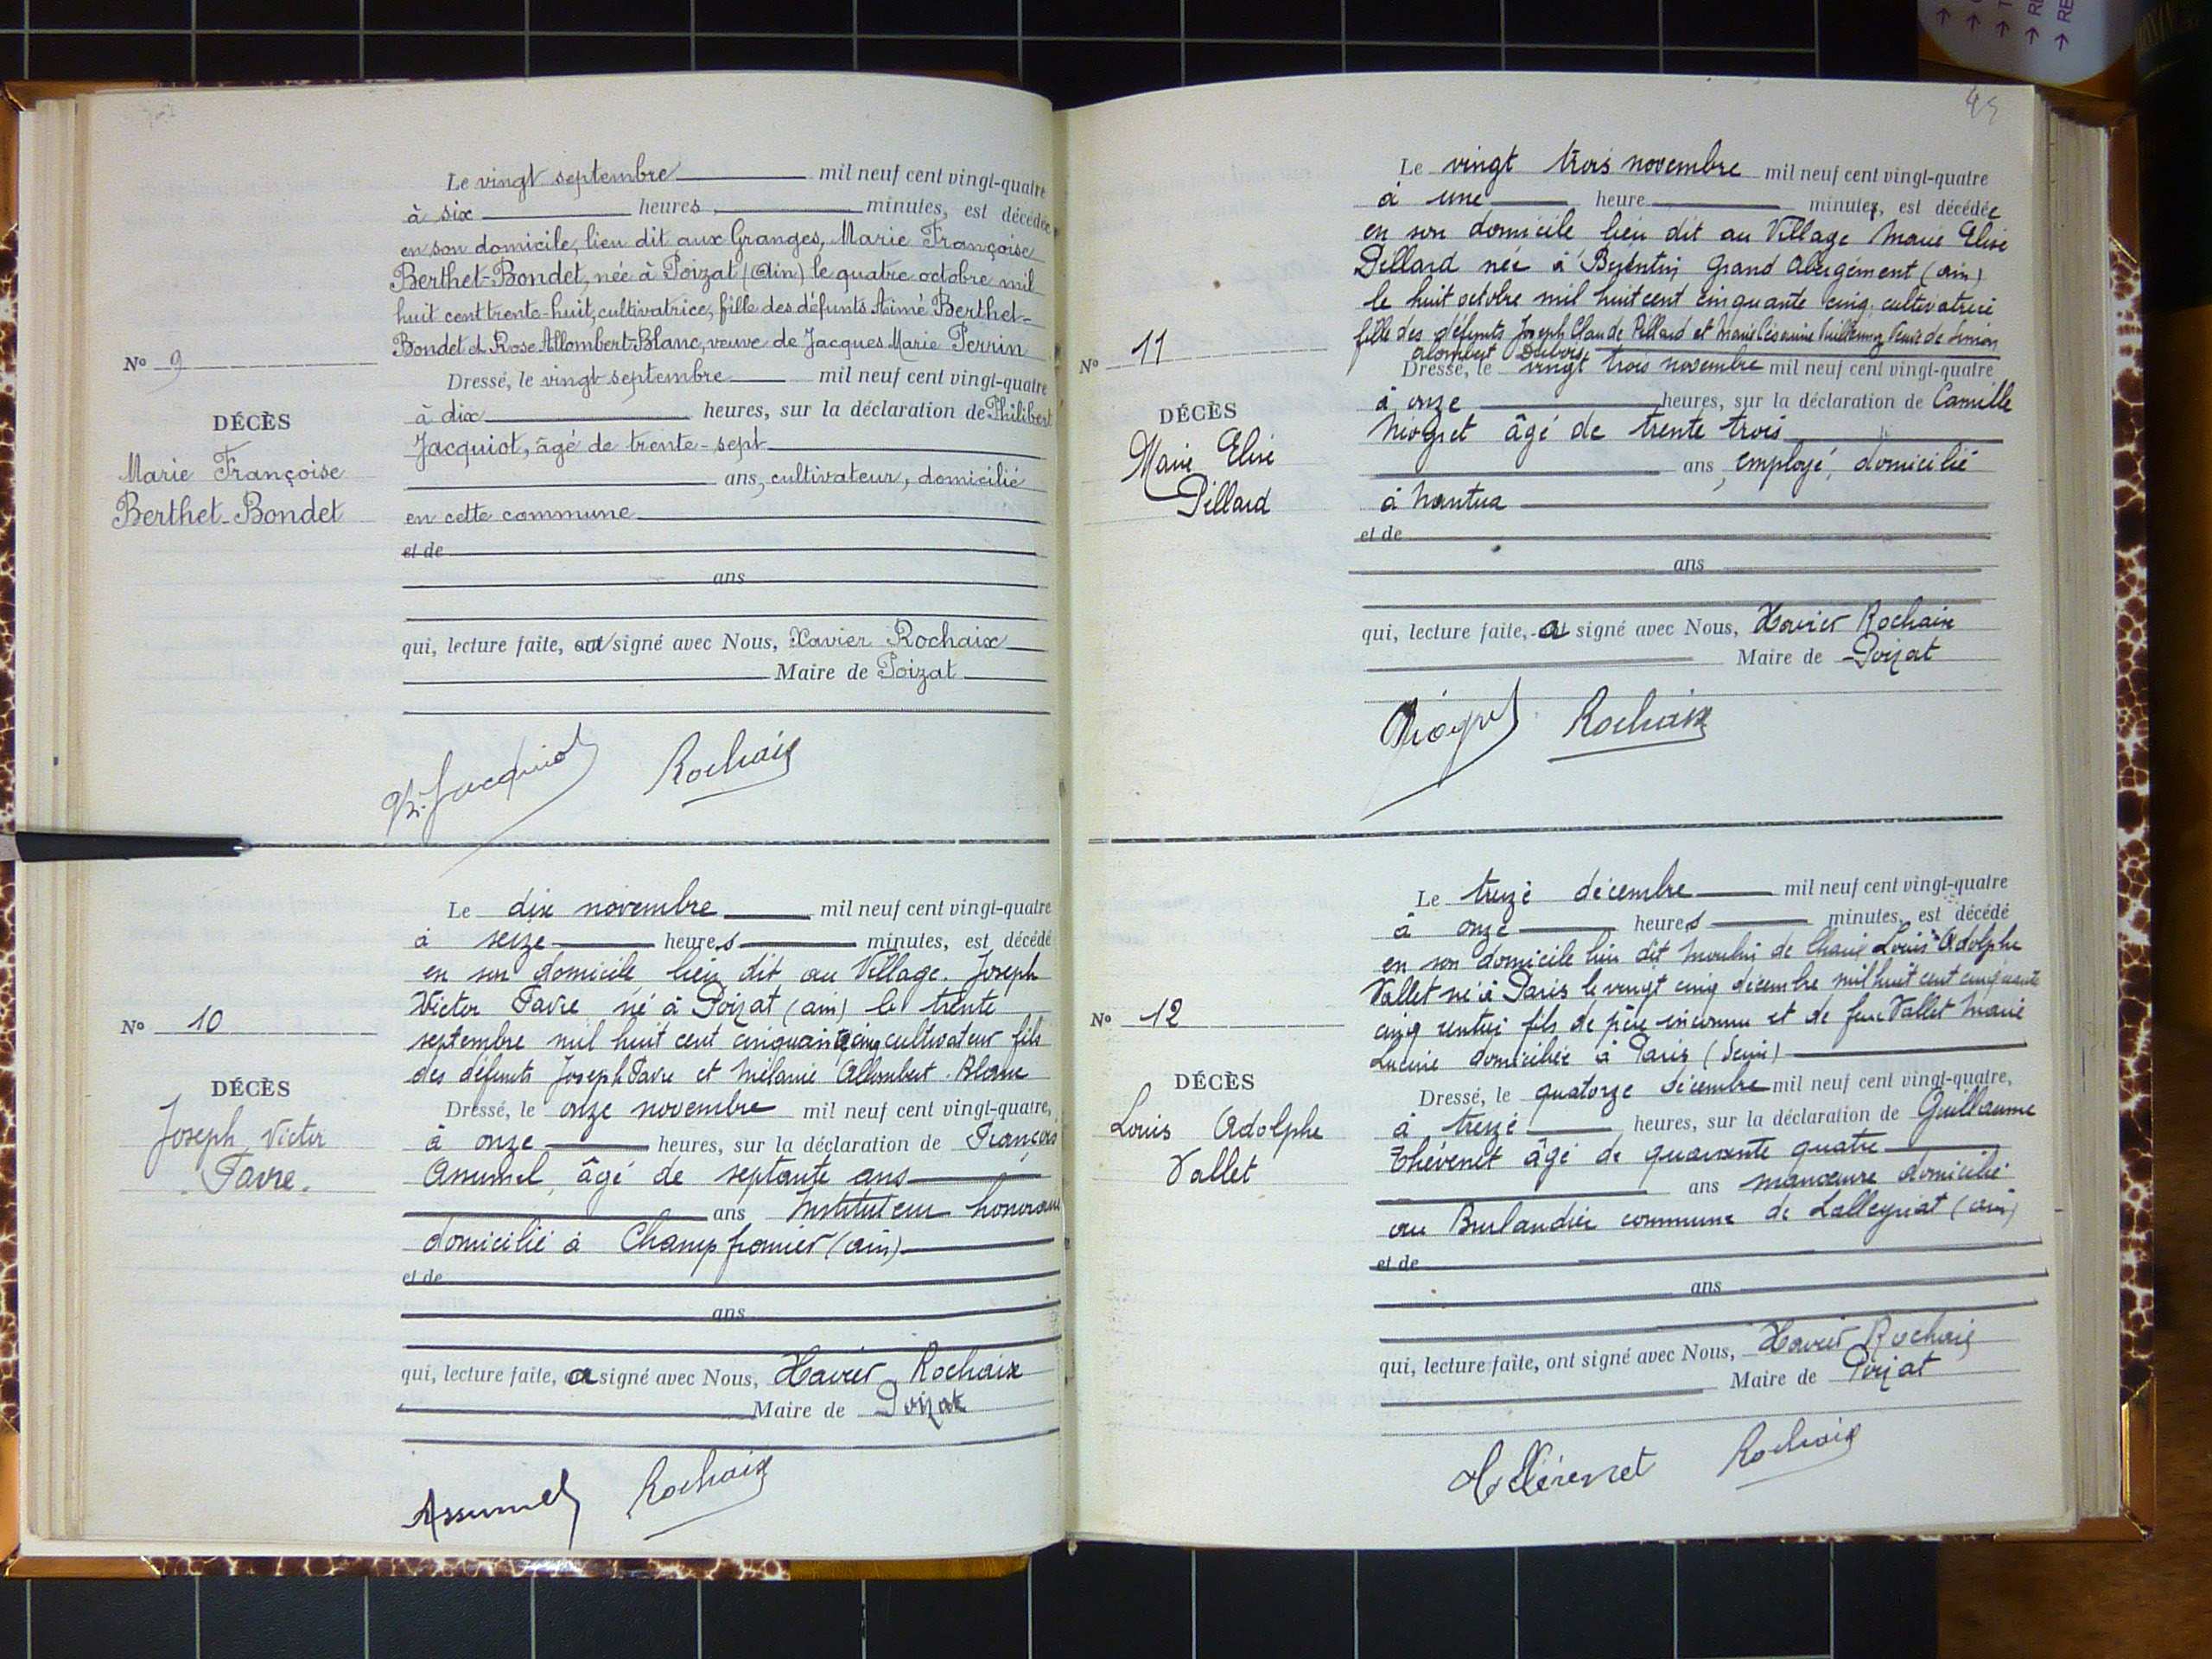 Le vingt septembre mil neuf cent vingt-quatre
à six heures minutes, est décédée
en son domicile, lieu dit aux Granges, Marie Françoise
Berthet-Bondet, née à Poizat (Ain) le quatre octobre mil
huit cent trente-huit, cultivatrice, fille des défunts Aimé Berthet-
Bondet et Rose Allombert-Blanc, veuve de Jacques Marie Perrin
Nº 9
Dressé, le vingt septembre mil neuf cent vingt-quatre
à dix heures, sur la déclaration de Philibert
DÉCÈS
Jacquiot, âgé de trente-sept
Marie Françoise
ans, cultivateur, domicilié
Berthet-Bondet
en cette commune
et de
ans
qui, lecture faite, signé avec Nous, Xavier Rochaix
Maire de Poizat
Ph. Jacquiot Rochaix
Le dix novembre mil neuf cent vingt-quatre
à seize heures minutes, est décédé
en son domicile lieu dit au Village. Joseph
Victor Favre né à Poizat (ain) le trente
Nº 10
septembre mil huit cent cinquante cinq cultivateur fils
des défunts Joseph Favre et Mélanie Allombert-Blanc
DÉCÈS
Dressé, le onze novembre mil neuf cent vingt-quatre,
Joseph Victor
à onze heures, sur la déclaration de François
Favre.
Assumel, âgé de septante ans
ans Instituteur honoraire
domicilié à Champfromier (ain)
et de
ans
qui, lecture faite, a signé avec Nous, Xavier Rochaix
Maire de Poizat
Assumel Rochaix
45
Le vingt trois novembre mil neuf cent vingt-quatre
à une heure minutes, est décédée
en son domicile lieu dit au Village Marie Elise
Pillard née à Grand Abergement (ain)
le huit octobre mil huit cent cinquante cinq. cultivatrice
fille des défunts Joseph Claude Pillard et Marie Césarine Veuve de Simon
Alombert Dubois
Nº 11
Dressé, le vingt trois novembre mil neuf cent vingt-quatre
DÉCÈS
à onze heures, sur la déclaration de Camille
Marie Elise
Niogret âgé de trente trois
Pillard
ans, employé, domicilié
à Nantua
et de
ans
qui, lecture faite, a signé avec Nous, Xavier Rochaix
Maire de Poizat
Niogret Rochaix
Le treize décembre mil neuf cent vingt-quatre
à onze heures minutes, est décédé
en son domicile lieu dit Moulin de Charix Louis Adolphe
Vallet né à Paris le vingt cinq décembre mil huit cent cinquante
Nº 12
cinq rentier fils de père inconnu et de feue Vallet Marie
Lucine domiciliée à Paris (Seine)
DÉCÈS
Dressé, le quatorze décembre mil neuf cent vingt-quatre,
Louis Adolphe
à treize heures, sur la déclaration de Guillaume
Vallet
Thévenet âgé de quarante quatre
ans manoeuvre domicilié
au Burlandier commune de Lalleyriat (ain)
et de
ans
qui, lecture faite, ont signé avec Nous, Xavier Rochaix
Maire de Poizat
Thévenet Rochaix